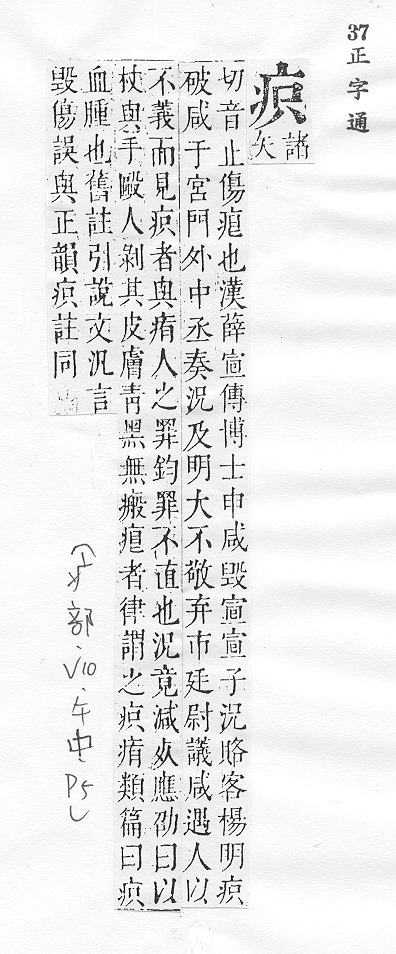 37正字通
疻
諸矢
切音止傷痕也漢薛宣傳博士申咸毀宣宣子況賂客楊明疻
破咸于宮門外中丞奏況及明大不敬弃市廷尉議咸遇人以
不義而見疻者與痏人之罪鈞罪不直也況竟減死應劭曰以
杖與手毆人剝其皮膚靑黑無瘢痕者律謂之疻痏類篇曰疻
血腫也舊註引說文汎言
毀傷誤與正韻疻註同
(疒部.V10.午中P5)